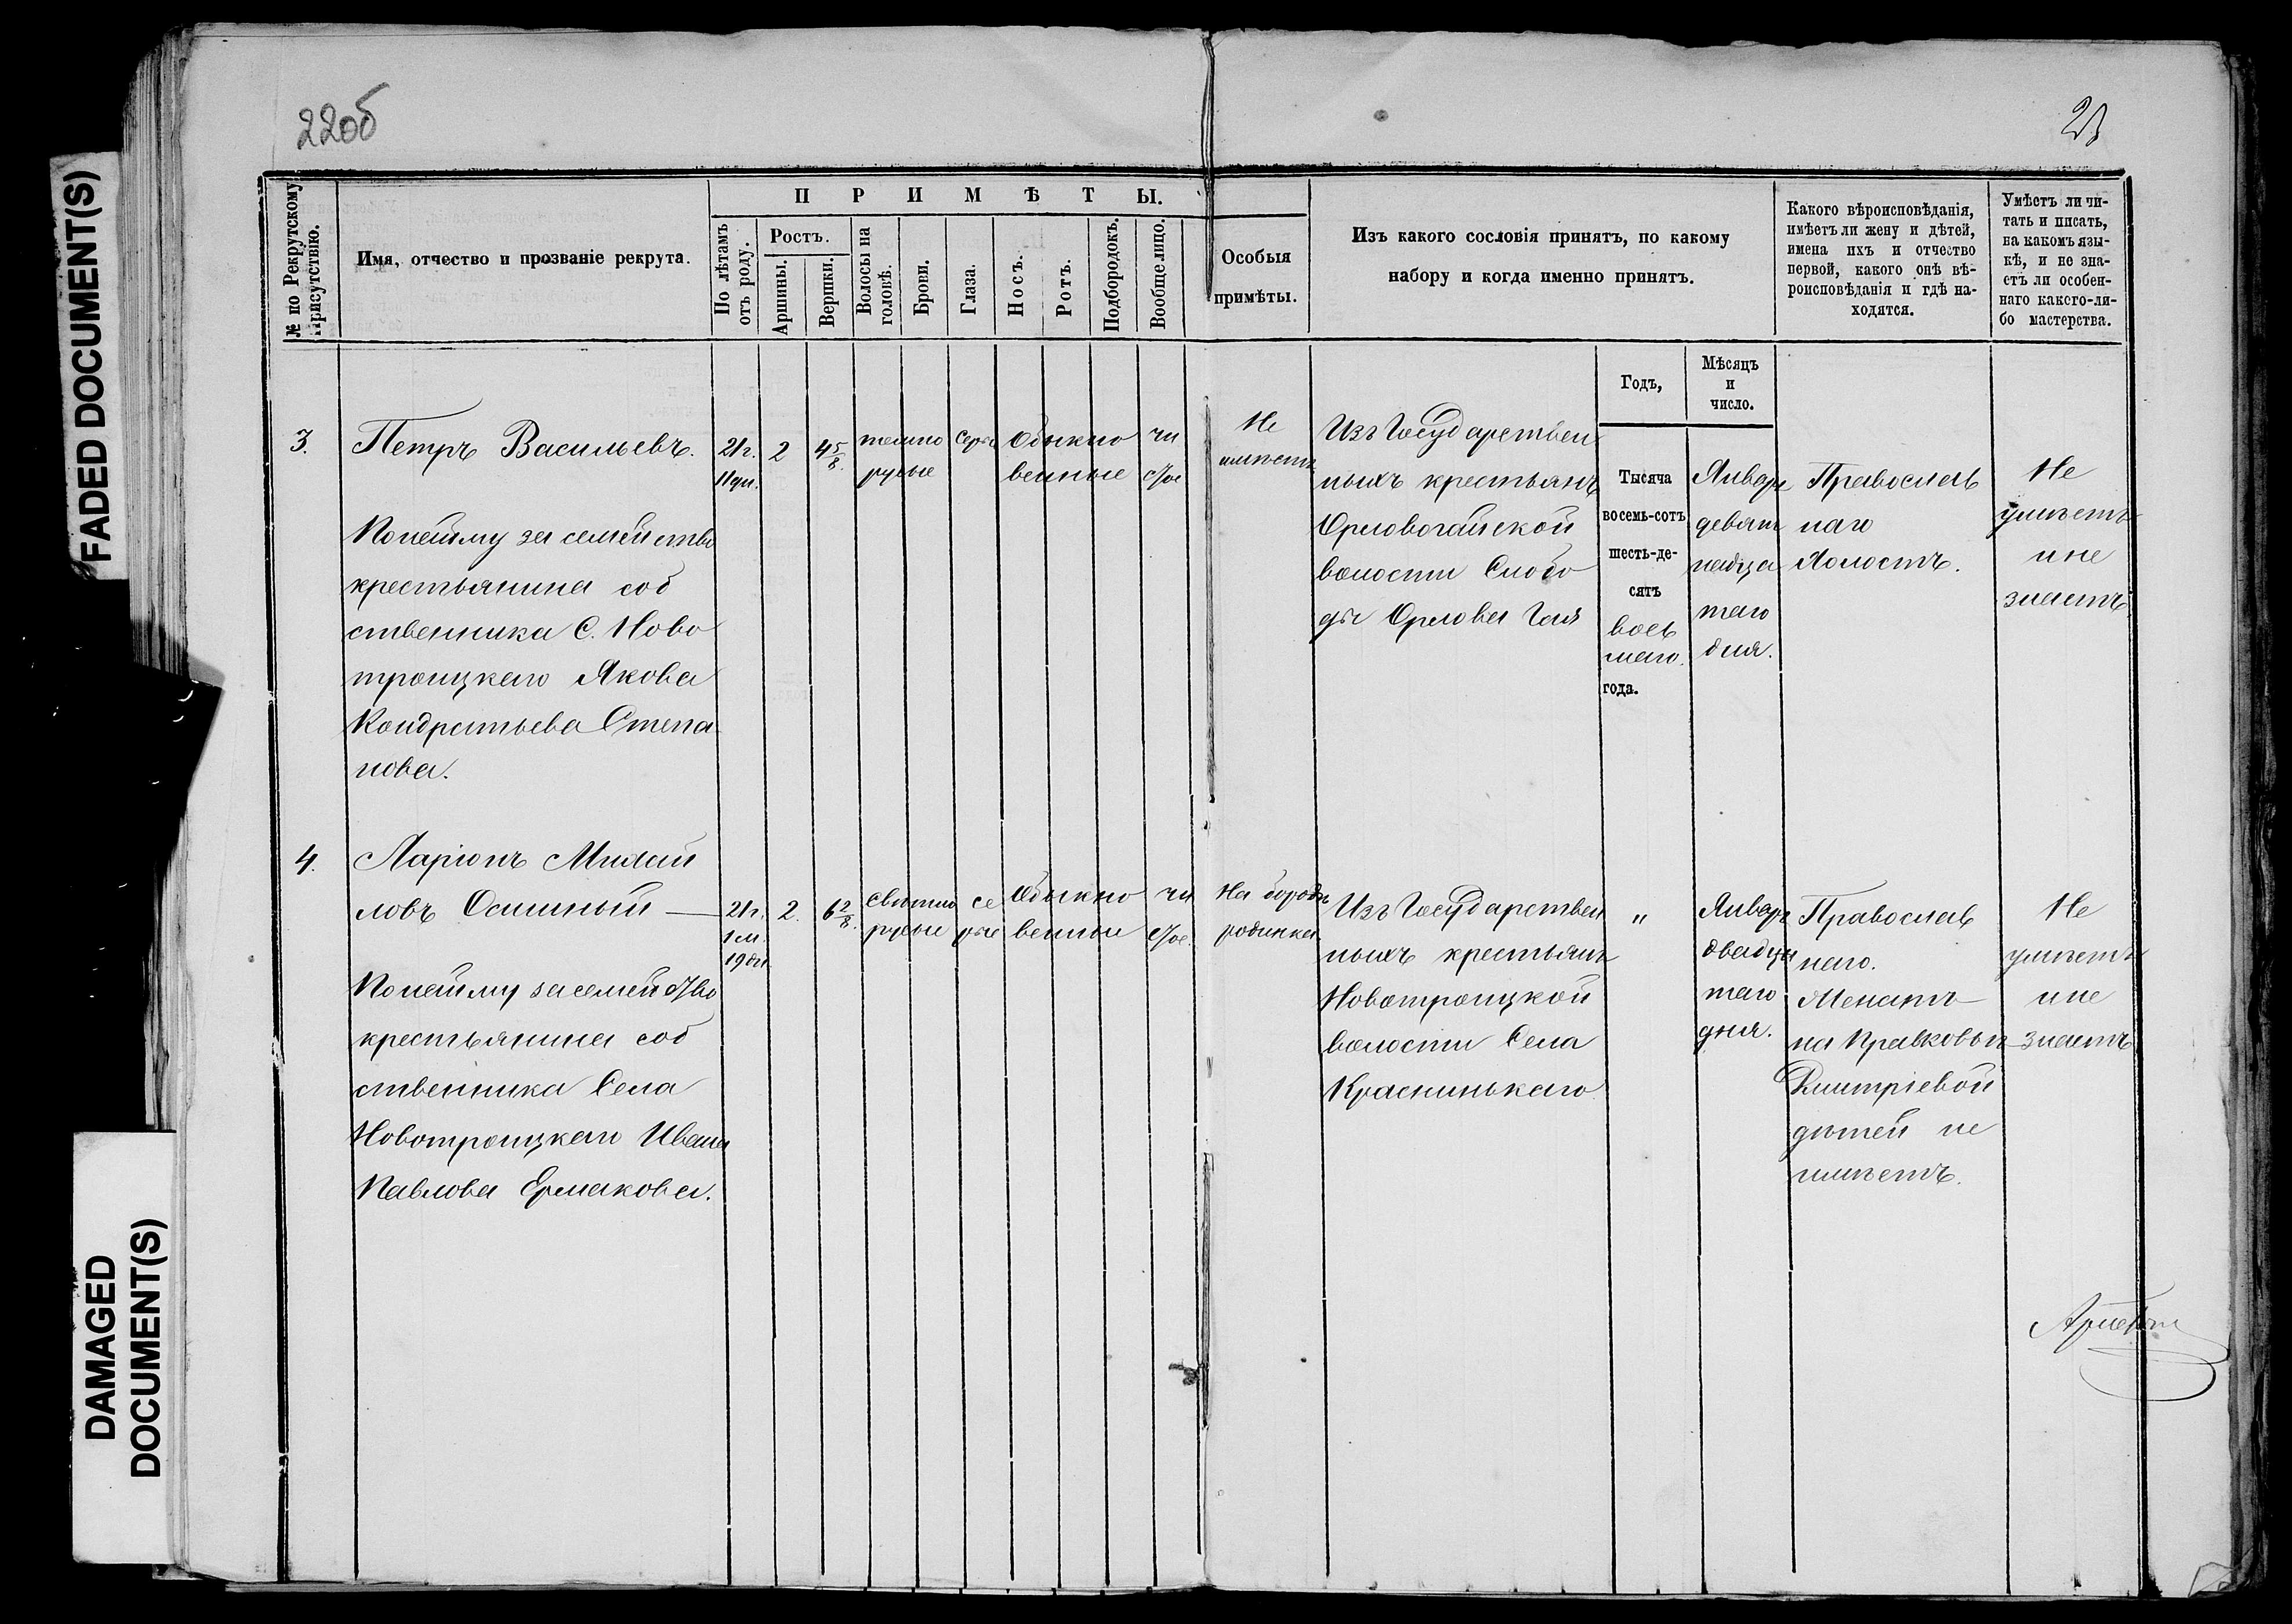 FADED DOCUMENT(S)
DAMAGED
DOCUMENT(S)
22об
23
№ по Рекрутскому
Присутствію.
Имя, отчество и прозваніе рекрута.
ПРИМѢТЫ.
По лѣтамъ
отъ роду.
Ростъ.
Аршины.
Вершки.
Волосы на
головѣ.
Брови.
Глаза.
Носъ.
Ротъ.
Подбородокъ.
Вообще лицо.
Особыя
примѣты.
Изъ какого сословія принятъ, по какому
набору и когда именно принятъ.
Какого вѣроисповѣданія,
имѣетъ ли жену и дѣтей,
имена ихъ и отчество
первой, какого онѣ вѣ-
роисповѣданія и гдѣ на-
ходятся.
Умѣетъ ли чи-
тать и писать,
на какомъ язы-
кѣ, и не зна-
етъ ли особен-
наго какого-ли-
бо мастерства.
Годъ,
Мѣсяцъ
и
число.
3.
Петръ Васильевъ.
По найму за семейство
крестьянина соб
ственника С. Ново
троицкаго Якова
Кондратьева Степа
нова.
21г.
11дн.
2
4 5/8.
темно
русые
серые
Обыкно
венные
чи
стое
Не
имѣетъ
Изъ Государствен
ныхъ крестьянъ
Орловогайской
волости Слобо
ды Орлова Гая
Тысяча
восемь-сотъ
шесть-де-
сятъ
вось
маго.
года.
Января
девят
надца
таго
дня.
Православ
наго
Холостъ.
Не
умѣетъ
и не
знаетъ
4.
Ларіонъ Михай
ловъ Осинный
По найму за семейство
крестьянина соб
ственника Села
Новотроицкаго Ивана
Павлова Ермакова.
21г.
1 м.
19 дн.
2.
6 2/8.
свѣтло
русые
се
рые
Обыкно
венные
чи
стое.
На бородѣ
родинка
Изъ Государствен
ныхъ крестьянъ
Новотроицкой
волости Села
Краснинькаго
"
Января
двадца
таго
дня.
Православ
наго.
Женатъ
на Прасковьи
Дмитріевой
дѣтей не
имѣетъ.
Не
умѣетъ
и не
знаетъ